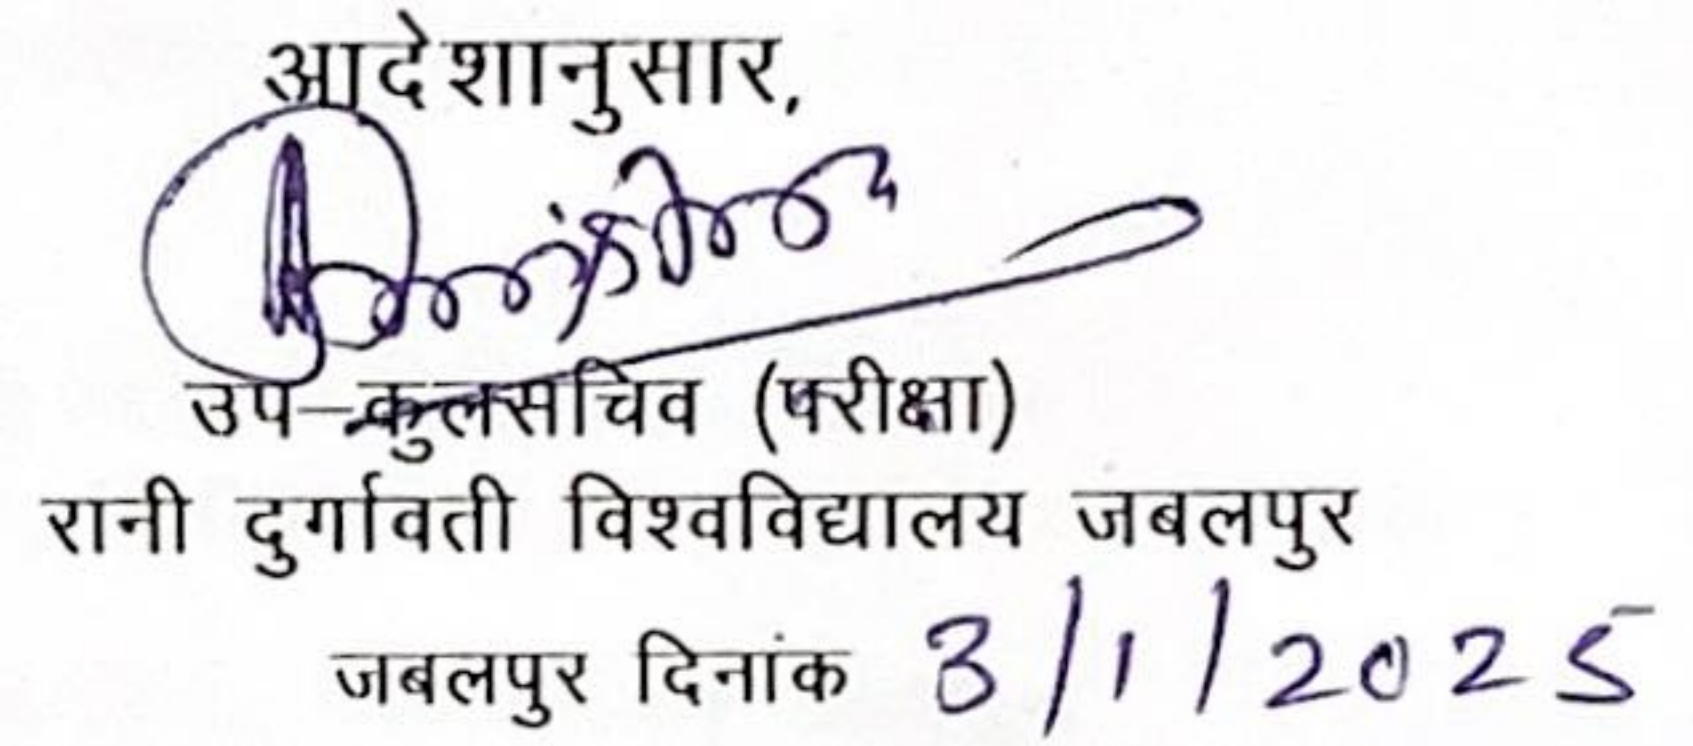 आदेशानुसार,
उप–कुलसचिव (परीक्षा)
रानी दुर्गावती विश्वविद्यालय जबलपुर
जबलपुर दिनांक 3/1/2025